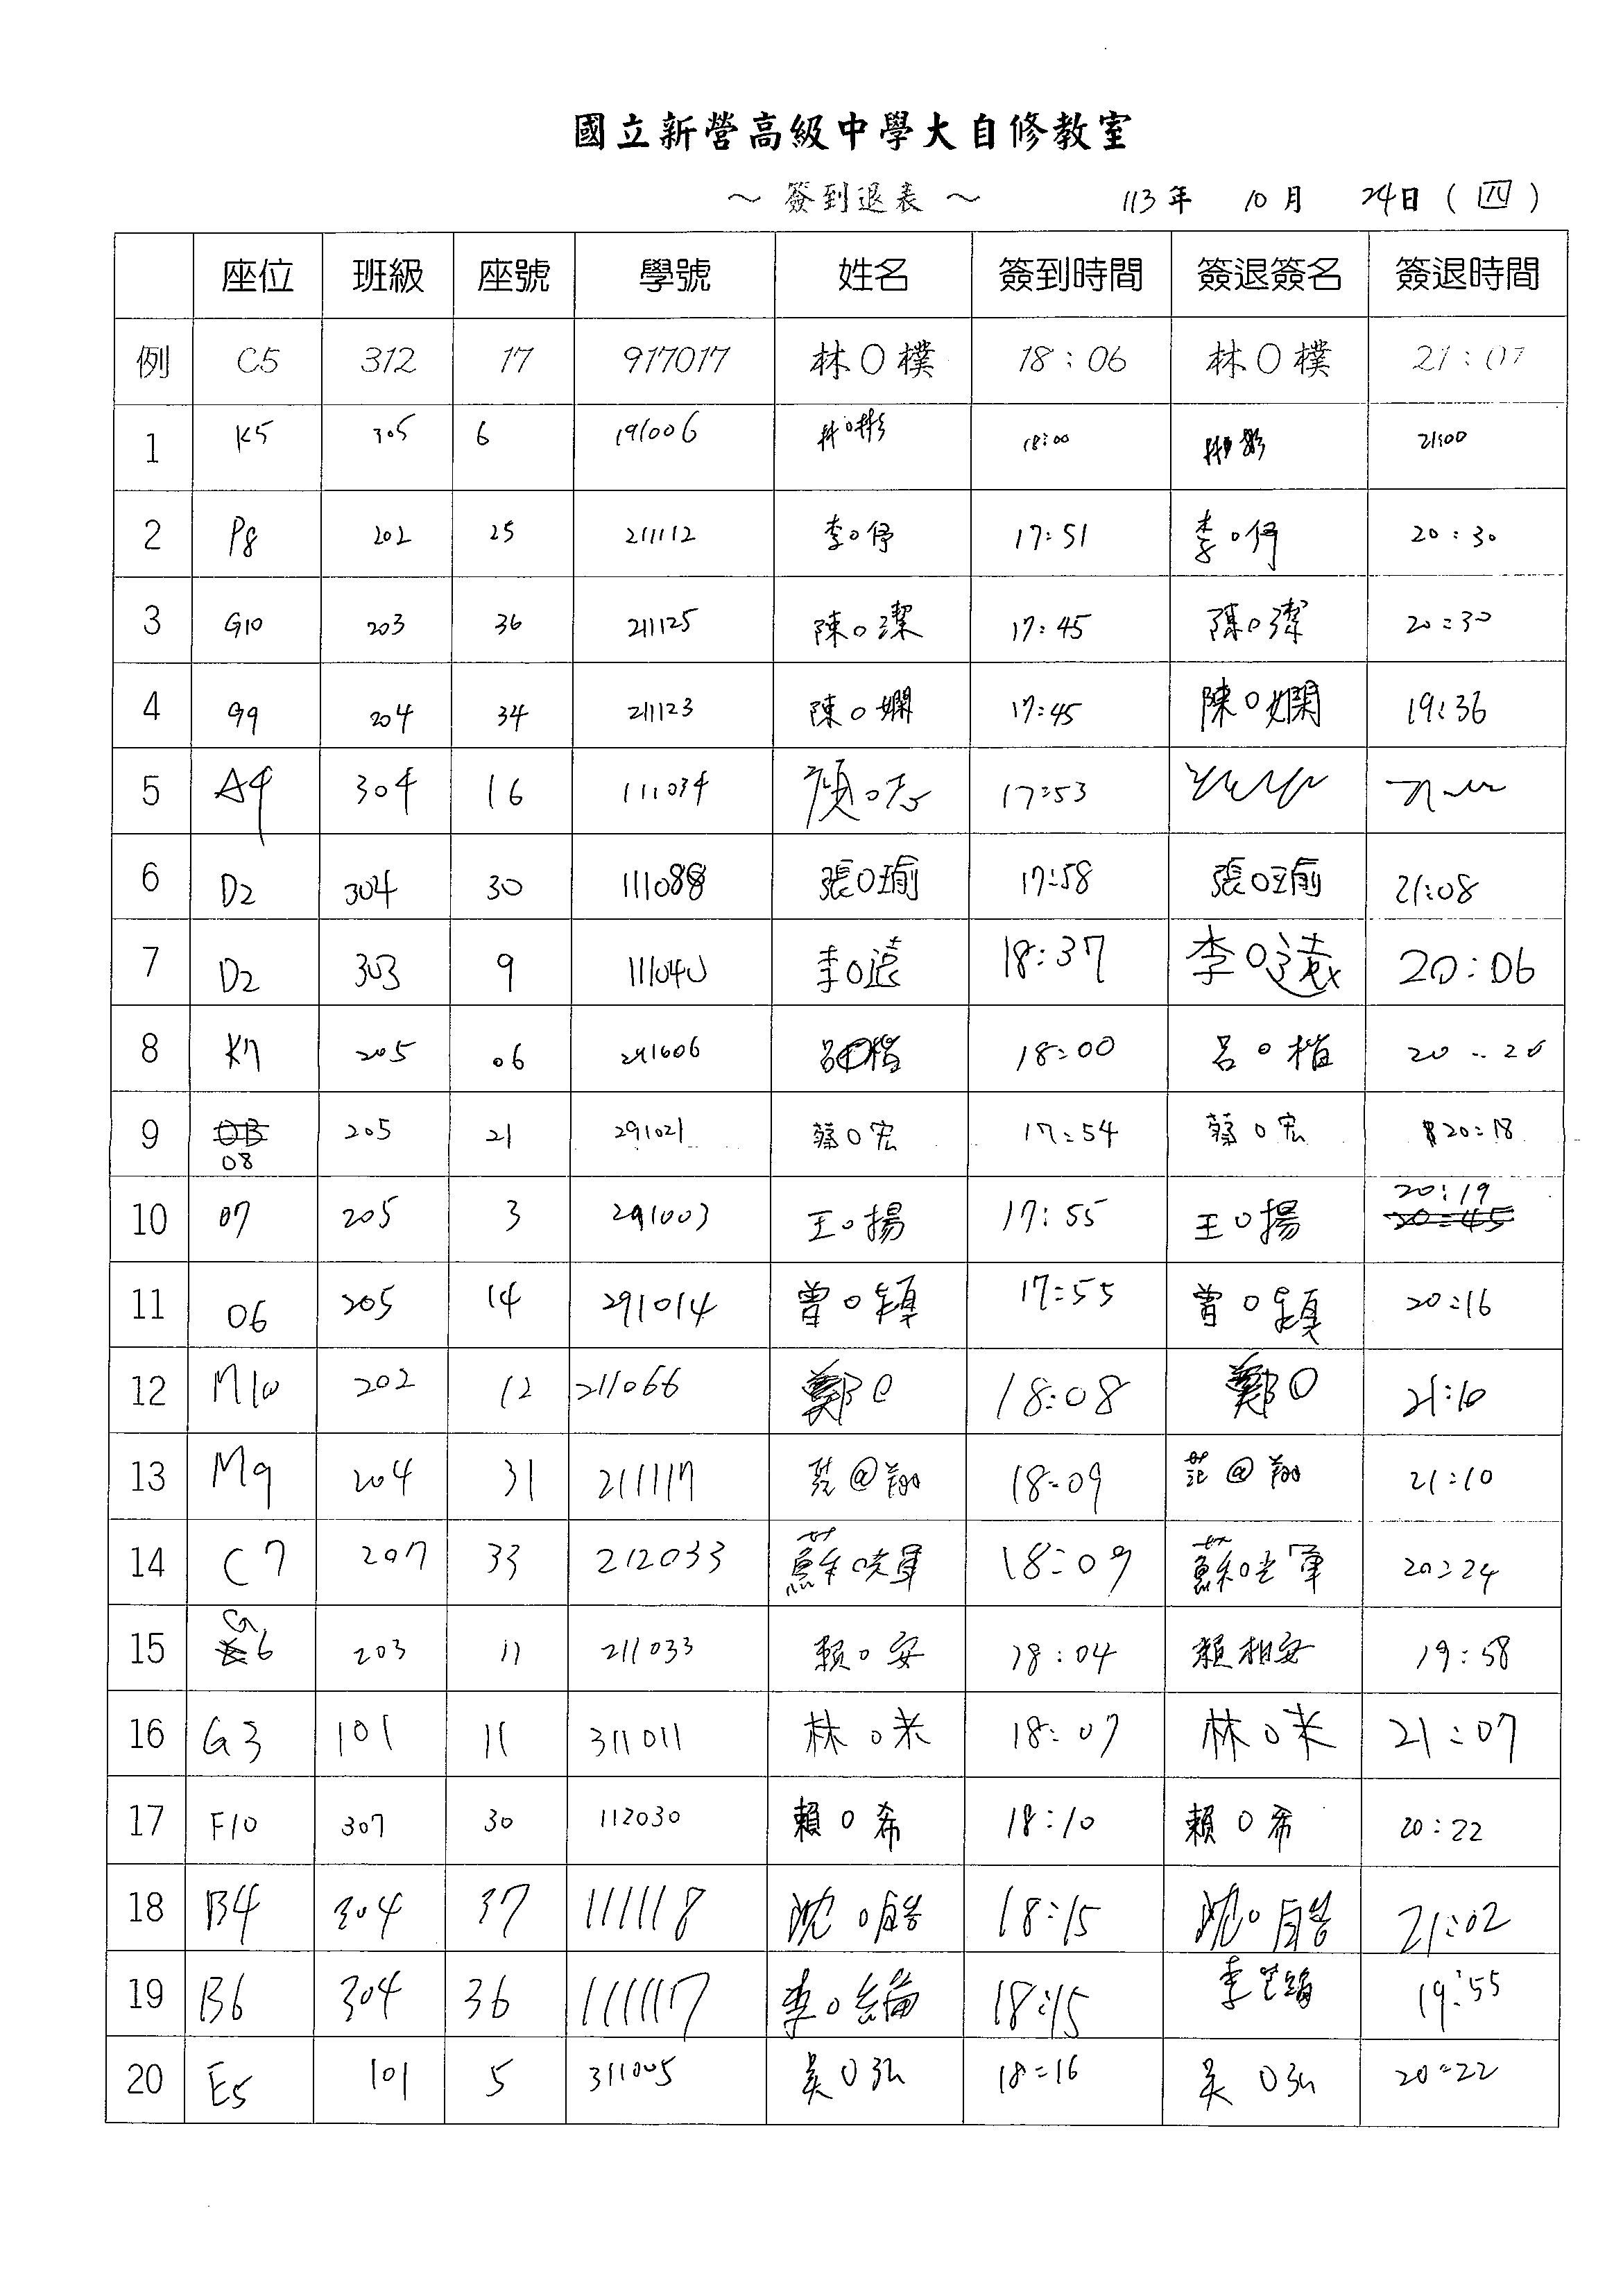 國立新營高級中學大自修教室
～ 簽到退表 ～ 113年 10月 24日 (四)
座位 班級 座號 學號 姓名 簽到時間 簽退簽名 簽退時間
例 C5 312 17 917017 林○樸 18:06 林○樸 21:07
1 K5 305 6 191006 18:00 21:00
2 P8 202 25 211112 李○伃 17:51 李○伃 20:30
3 G10 203 36 211125 陳○潔 17:45 陳○潔 20:30
4 G9 204 34 211123 陳○嫻 17:45 陳○嫻 19:36
5 A4 304 16 111034 顏○ 17:53
6 D2 304 30 111088 張○瑜 17:58 張○瑜 21:08
7 D2 303 9 111040 李○遠 18:37 李○遠 20:06
8 K7 205 06 291006 呂○楷 18:00 呂○楷 20:20
9 08 205 21 291021 蔡○宏 17:54 蔡○宏 20:18
10 07 205 3 291003 王○揚 17:55 王○揚 20:19
11 06 205 14 291014 曾○鎮 17:55 曾○鎮 20:16
12 M10 202 12 211066 鄭○ 18:08 鄭○ 21:10
13 M9 204 31 211117 范@翔 18:09 范@翔 21:10
14 C7 207 33 212033 蘇○暐 18:09 蘇○ 20:24
15 G6 203 11 211033 賴○安 18:04 賴相安 19:58
16 G3 101 11 311011 林○米 18:07 林○米 21:07
17 F10 307 30 112030 賴○希 18:10 賴○希 20:22
18 B4 304 37 111118 沈○皓 18:15 沈○皓 21:02
19 B6 304 36 111117 李○綸 18:15 19:55
20 E5 101 5 311005 吳○泓 18:16 吳○泓 20:22